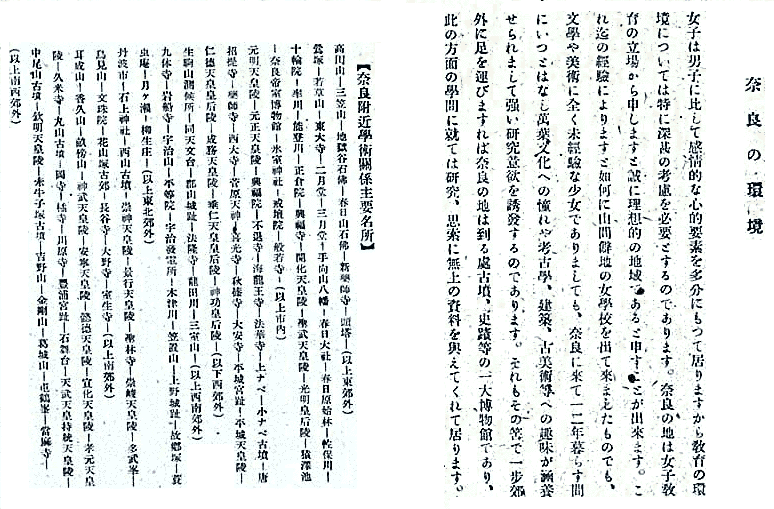 奈良の環境
女子は男子に比して感情的な心的要素を多分にもつて居りますから教育の環
境については特に深甚の考慮を必要とするのであります。奈良の地は女子教
育の立場から申しますと誠に理想的の地域であると申すことが出来ます。こ
れ迄の經驗によりますと如何に山間僻地の女學校を出て來ましたものでも、
文學や美術に全く未經驗な少女でありましても、奈良に來て一二年暮らす間
にいつとはなし萬葉文化への憧れや考古學、建築、古美術等への趣味が涵養
せられまして强い研究意欲を誘發するのであります。それもその筈で一步郊
外に足を運びますれば奈良の地は到る處古墳、史蹟等の一大博物館であり、
此の方面の學問に就ては研究、思索に無上の資料を與えてくれて居ります。
【奈良附近學術關係主要名所】
高圓山―三笠山―地獄谷石佛―春日山石佛―新藥師寺―頭塔―(以上東郊外)
鶯塚―若草山―東大寺―二月堂―三月堂―手向山八幡―春日大社―春日原始林―佐保川―
十輪院―率川―能登川―正倉院―興福寺―開化天皇陵―聖武天皇陵―光明皇后陵―猿澤池
―奈良帝室博物館―氷室神社―戒壇院―般若寺―(以上市內)
元明天皇陵―元正天皇陵―興福院―不退寺―海龍王寺―法華寺―上ナベ―小ナベ古墳―唐
招提寺―藥師寺―西大寺―菅原天神―喜光寺―秋篠寺―大安寺―平城宮趾―平城天皇陵―
仁德天皇皇后陵―成務天皇陵―垂仁天皇陵―神功皇后陵―(以下西郊外)
生駒山測候所―同天文台―郡山城趾―法隆寺―龍田川―三室山―(以上西南郊外)
九体寺―岩船寺―宇治山―平等院―宇治發電所―木津川―笠置山―上野城趾―故鄕塚―蓑
虫庵―月ヶ瀨―柳生庄―(以上東北郊外)
丹波市―石上神社―西山古墳―崇神天皇陵―景行天皇陵―聖林寺―崇峻天皇陵―多武峯―
鳥見山―文珠院―花山塚古墳―長谷寺―大野寺―室生寺―(以上南郊外)
耳成山―香久山―畝傍山―神武天皇陵―安寧天皇陵―懿德天皇陵―宣化天皇陵―孝元天皇
陵―久米寺―丸山古墳―岡寺―橘寺―川原寺―豐浦宮趾―石舞台―天武天皇持統天皇陵―
中尾山古墳―欽明天皇陵―赤牛子塚古墳―吉野山―金剛山―葛城山―屯鶴峯―當麻寺―
(以上南西郊外)